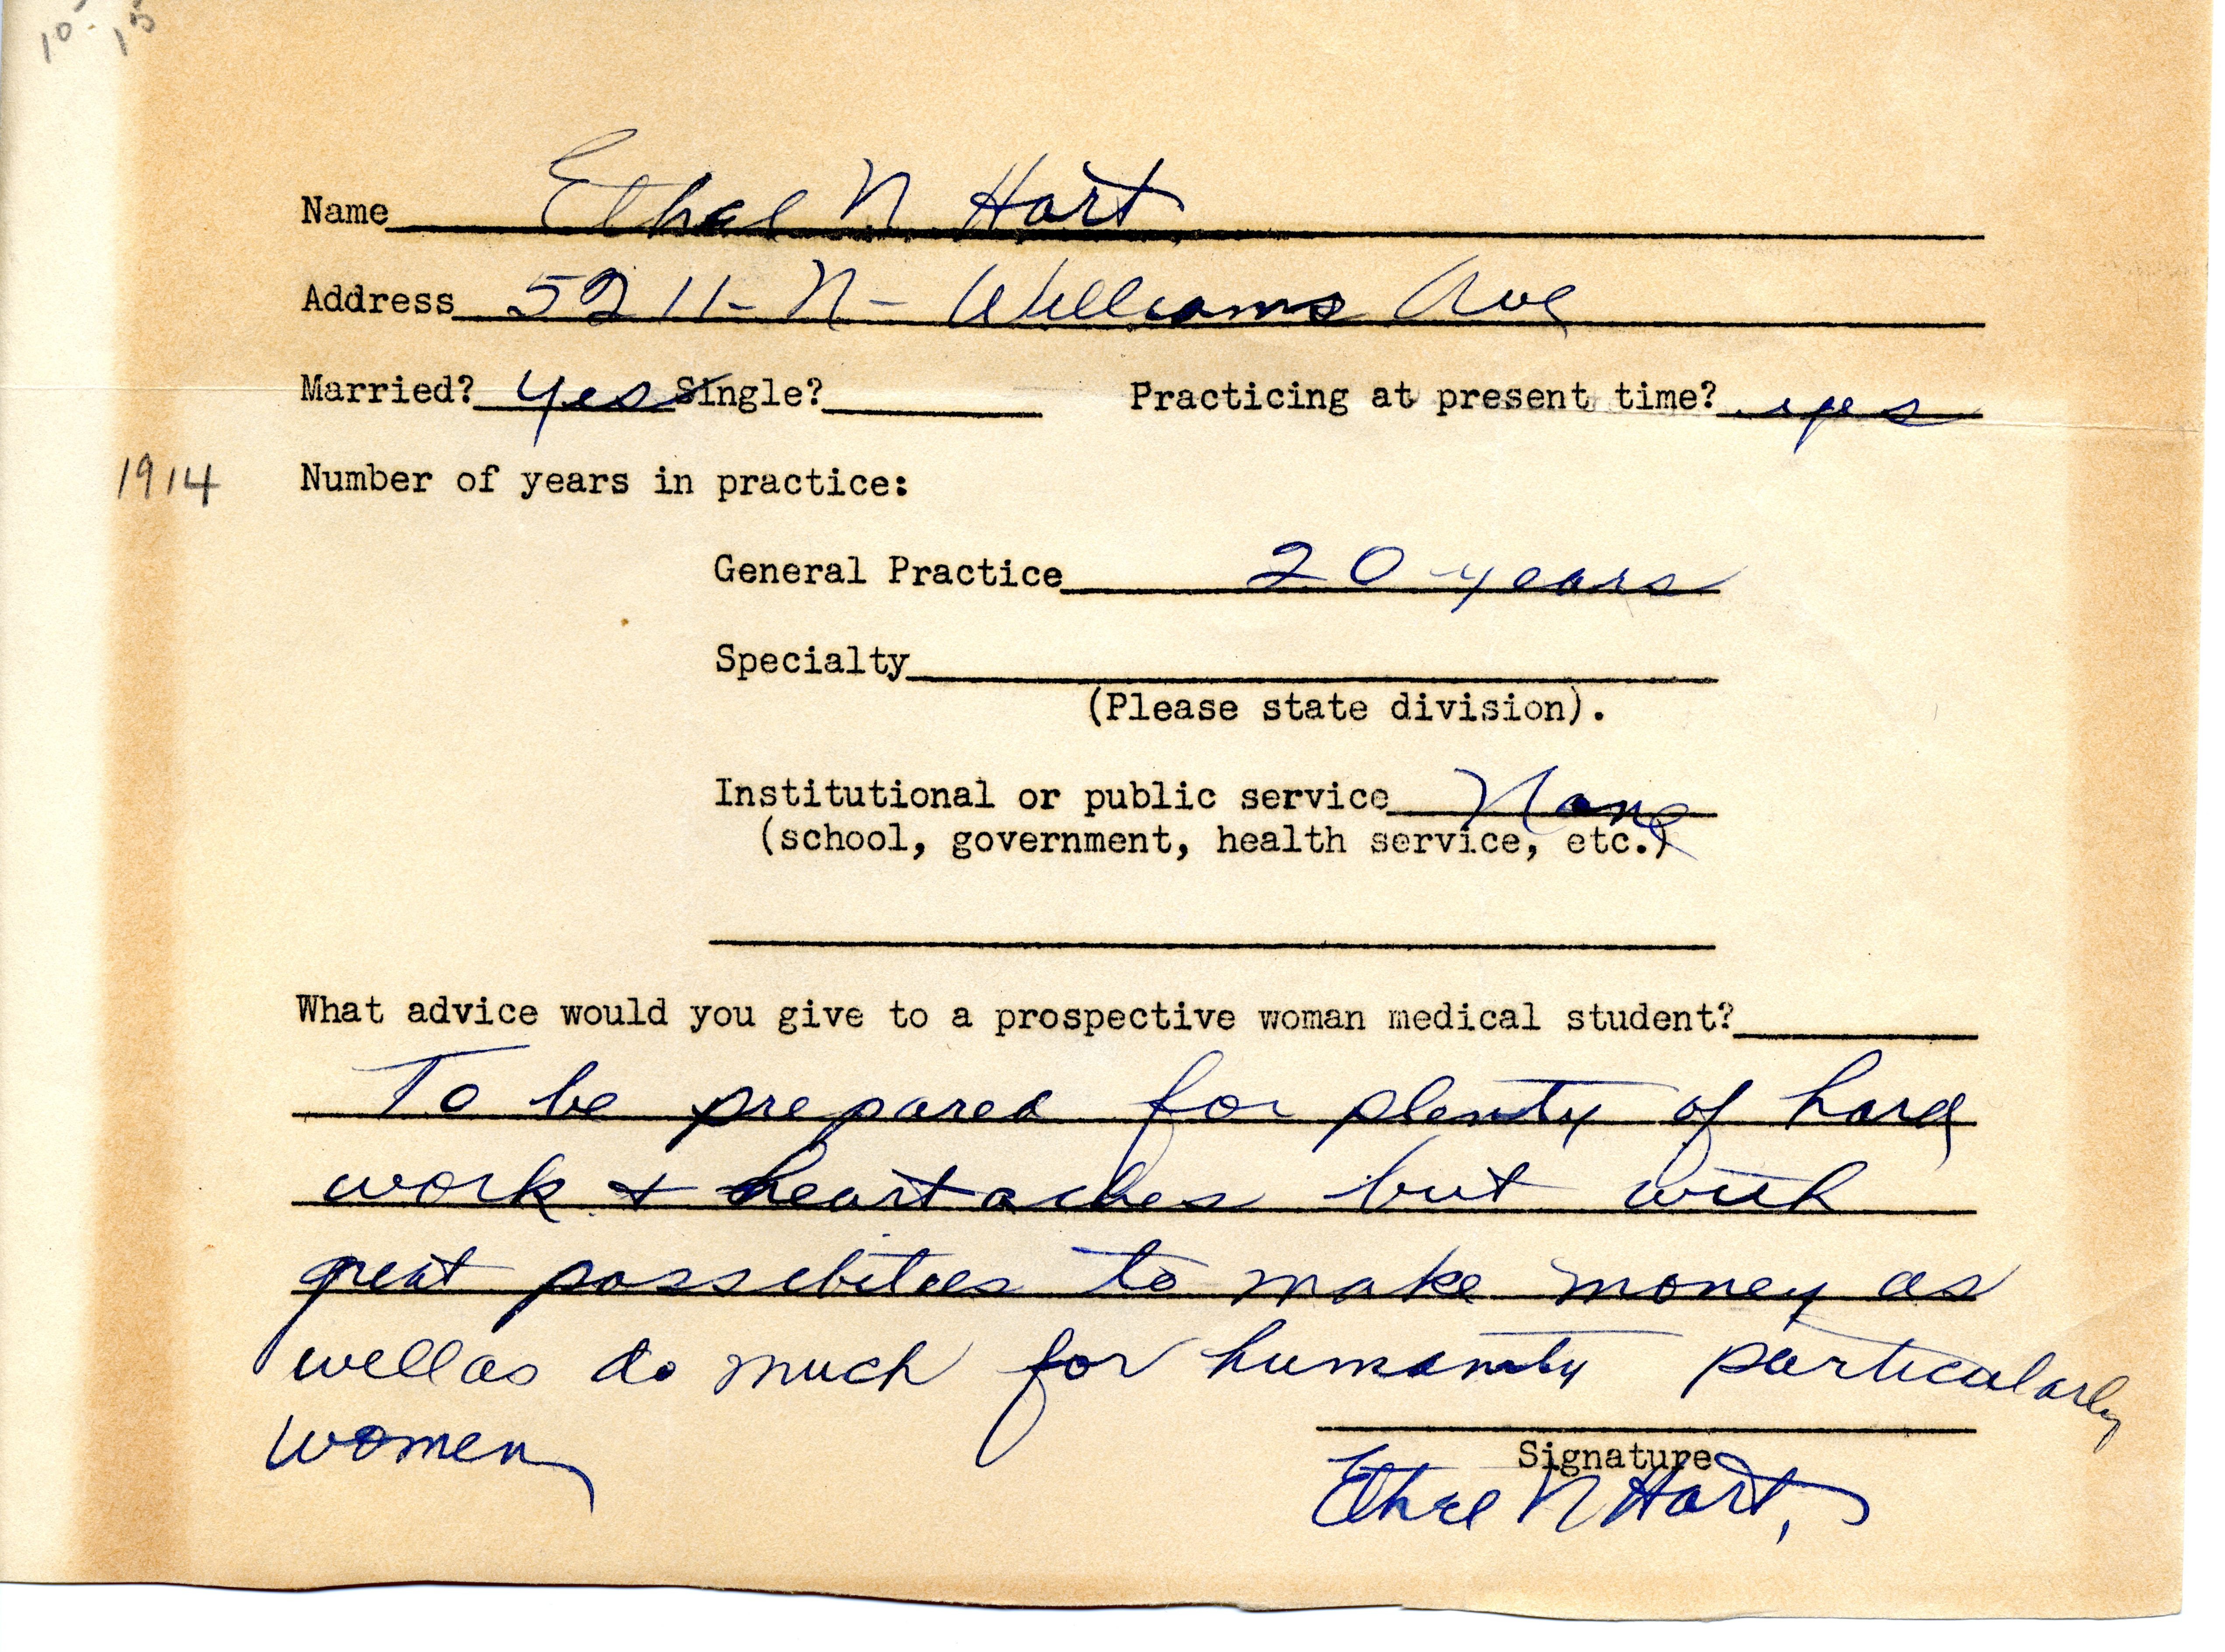 10- 15
Name Ethel N Hart
Address 5211- N- Williams Ave
Married? yes Single? Practicing at present time? yes
1914 Number of years in practice:
General Practice 20 years
Specialty
(Please state division).
Institutional or public service None
(school, government, health service, etc.)
What advice would you give to a prospective woman medical student?
To be prepared for plenty of hard
work + heartaches but with
great possibities to make money as
well as do much for humanity particularly
women
Signature
Ethel N Hart,